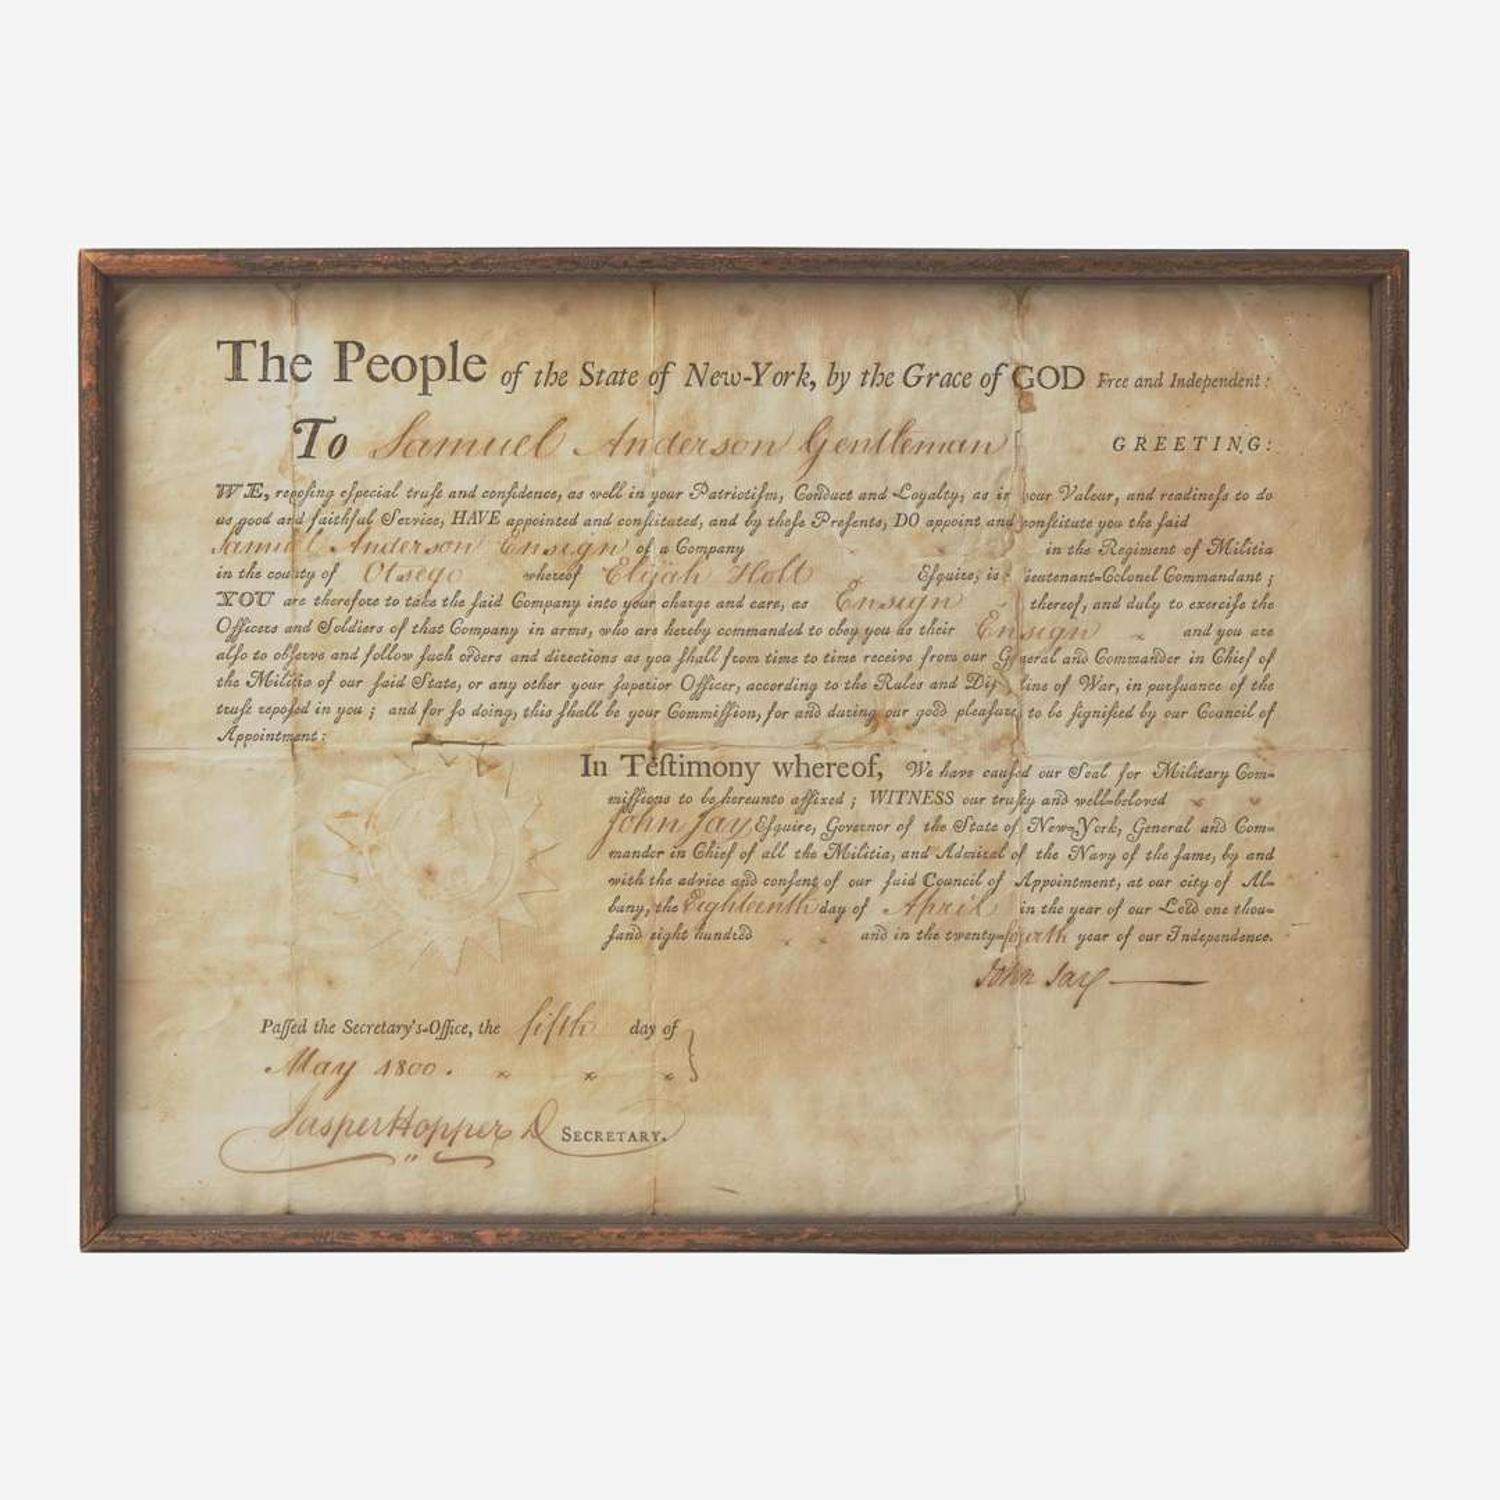 The People of the State of New-York, by the Grace of GOD Free and Independent:
To Samuel Anderson Gentleman GREETING:
WE, repoſing eſpecial truſt and confidence, as well in your Patriotiſm, Conduct and Loyalty, as in your Valour, and readineſs to do
us good and faithful Service, HAVE appointed and conſtituted, and by theſe Preſents, DO appoint and conſtitute you the ſaid
Samuel Anderson Ensign of a Company in the Regiment of Militia
in the county of Otsego whereof Elijah Holt Eſquire, is ieutenant=Colonel Commandant;
YOU are therefore to take the ſaid Company into your charge and care, as Ensign thereof, and duly to exerciſe the
Officers and Soldiers of that Company in arms, who are hereby commanded to obey you as their Ensign and you are
alſo to obſerve and follow ſuch orders and directions as you ſhall from time to time receive from our General and Commander in Chief of
the Militia of our ſaid State, or any other your ſuperior Officer, according to the Rules and Diſ line of War, in purſuance of the
truſt repoſed in you; and for ſo doing, this ſhall be your Commiſſion, for and during our good pleaſure, to be ſignified by our Council of
Appointment:
In Teſtimony whereof, We have cauſed our Seal for Military Com=
miſſions to be hereunto affixed; WITNESS our truſty and well=beloved
John Jay Eſquire, Governor of the State of New=York, General and Com=
mander in Chief of all the Militia, and Admiral of the Navy of the ſame, by and
with the advice and conſent of our ſaid Council of Appointment, at our city of Al=
bany, the Eighteenth day of April in the year of our Lord one thou=
ſand eight hundred and in the twenty=fourth year of our Independence.
John Jay
Paſſed the Secretary's-Office, the fifth day of
May 1800.
Jasper Hopper D SECRETARY.